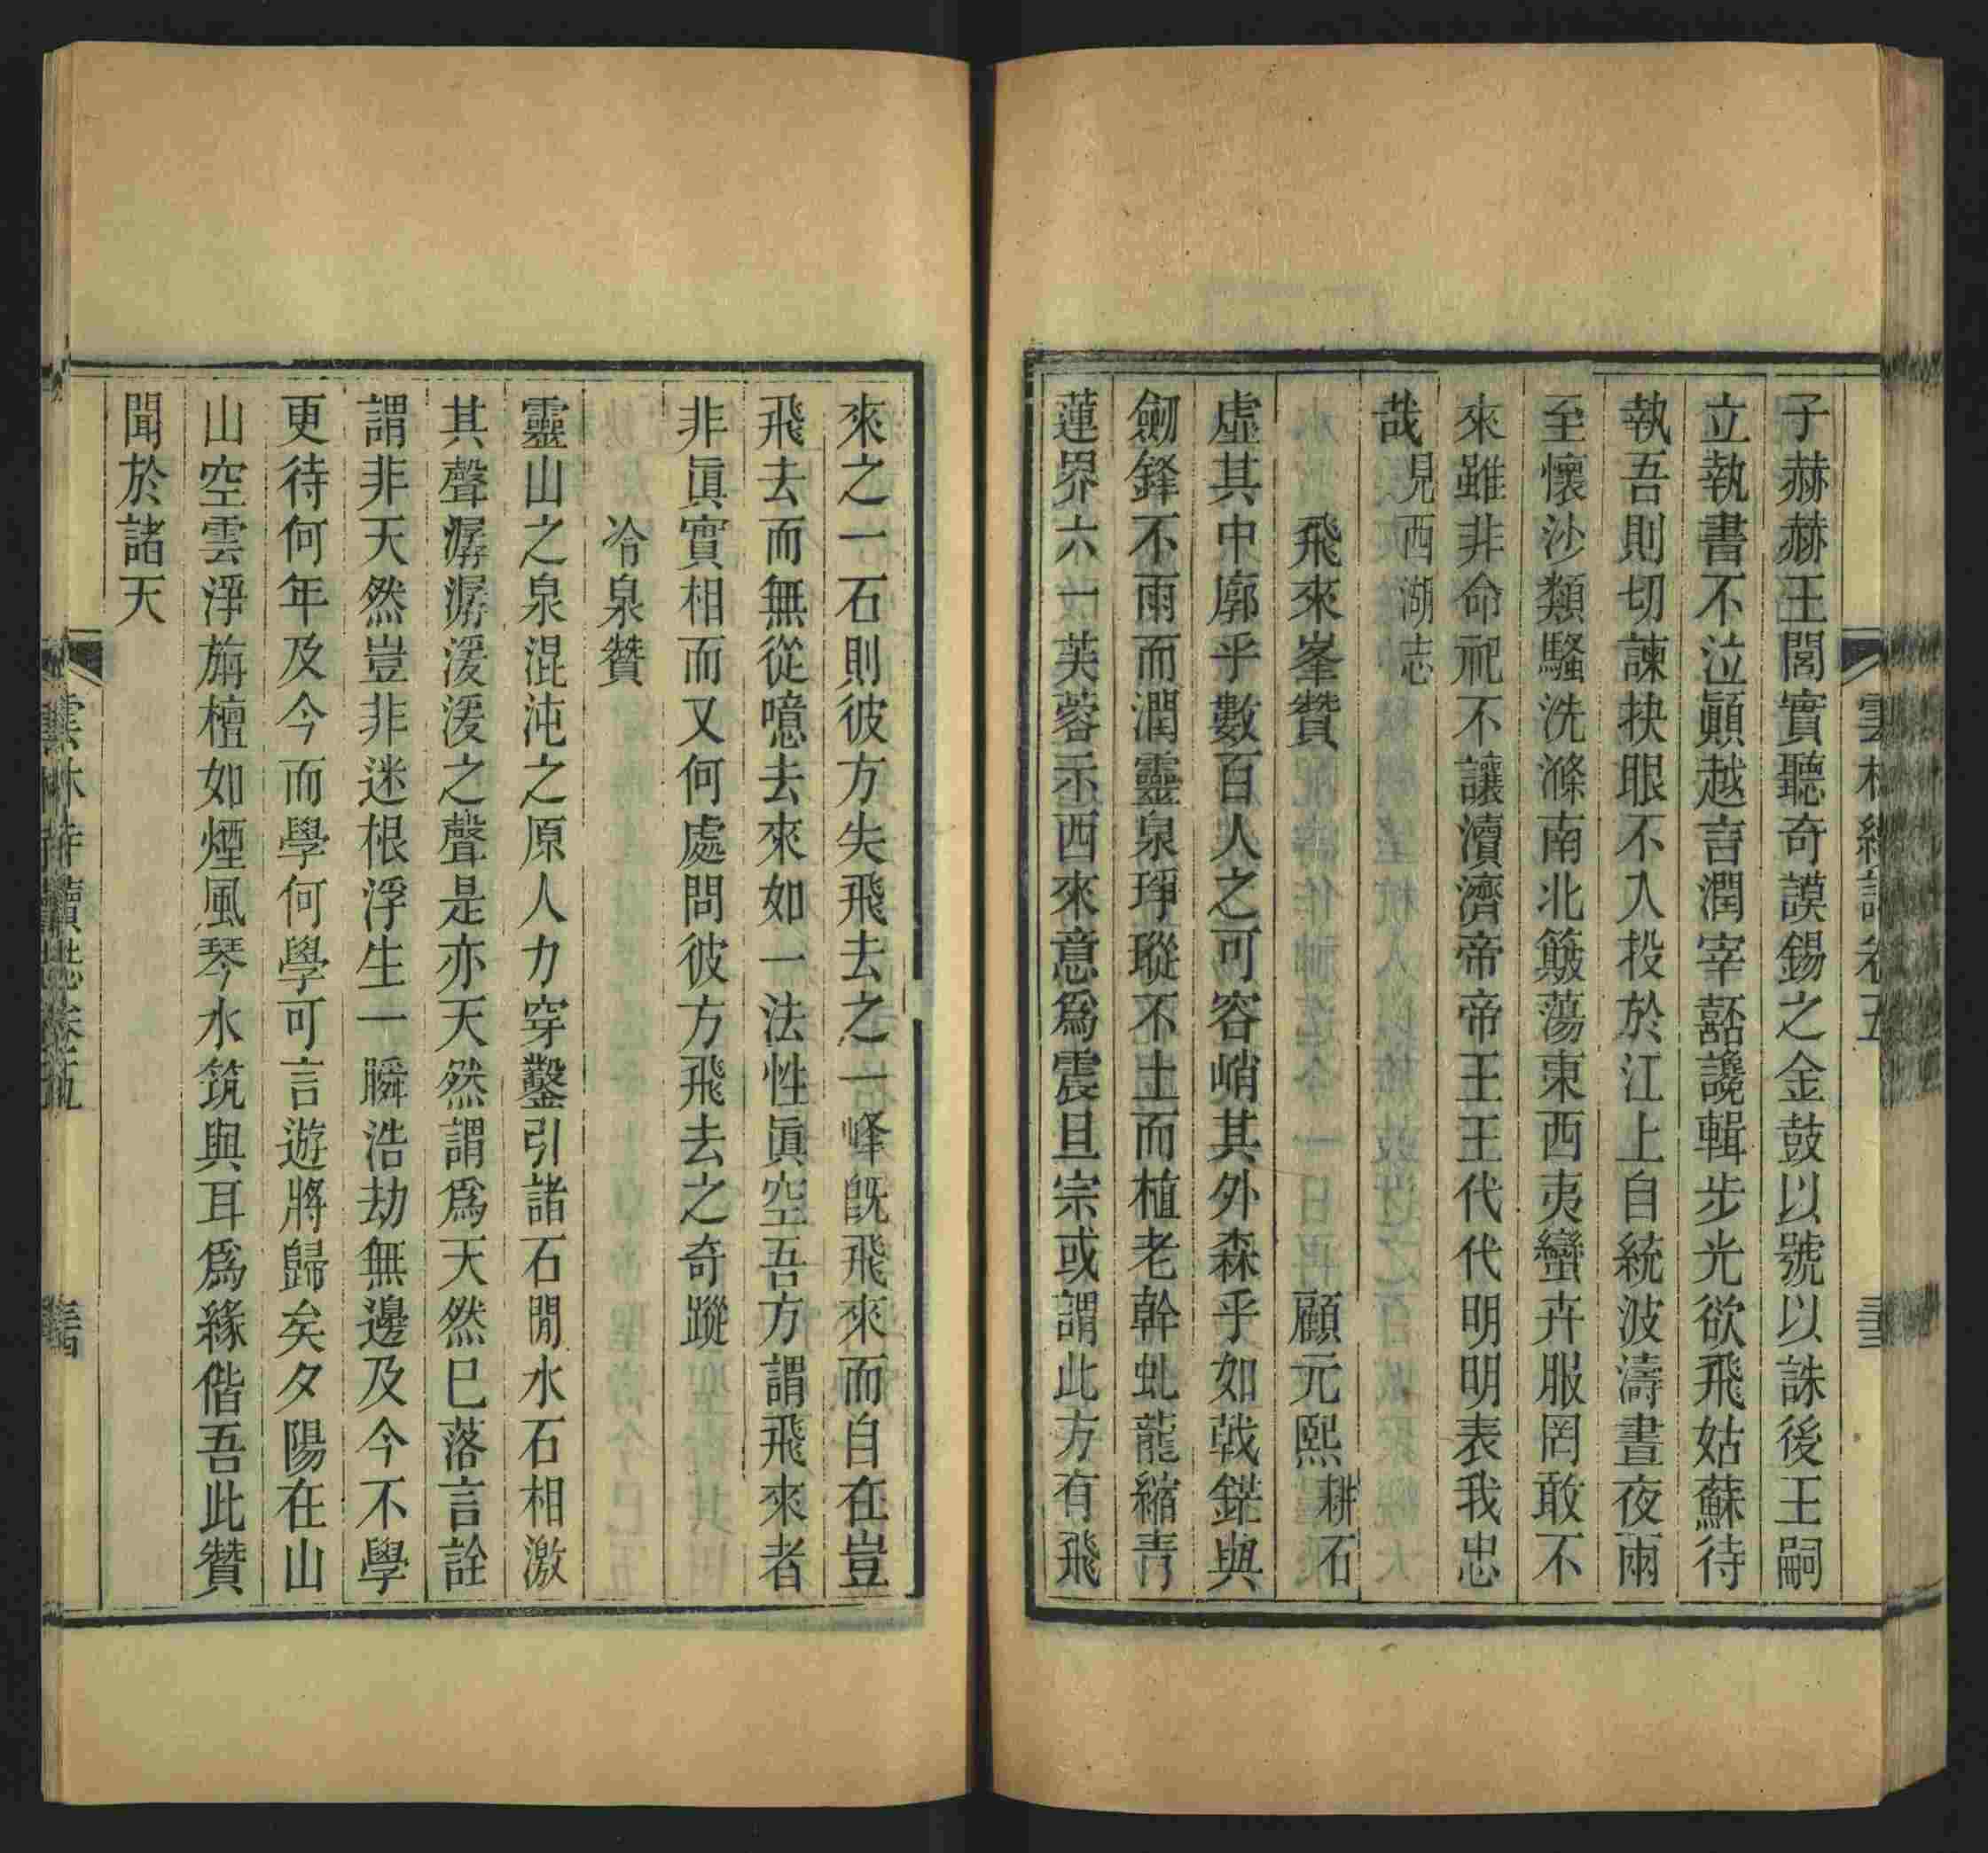 雲林 卷五
子赫赫王閭實聽奇謨錫之金鼓以號以誅後王嗣
立執書不泣顚越言潤宰嚭讒輯步光欲飛姑蘇待
執吾則切諫抉眼不入投於江上自統波濤晝夜雨
至懷沙類騷洗滌南北簸蕩東西夷蠻卉服罔敢不
來雖非命祀不讓瀆濟帝帝王王代代明明表我忠
哉見西湖志
飛來峯贊 顧元熙耕石
虛其中廓乎數百人之可容峭其外森乎如戟鋩與
劒鋒不雨而潤靈泉琤瑽不土而植老幹虬龍縮靑
蓮界六一芙蓉示西來意爲震旦宗或謂此方有飛
來之一石則彼方失飛去之一峰旣飛來而自在豈
飛去而無從噫去來如一法性眞空吾方謂飛來者
非眞實相而又何處問彼方飛去之奇蹤
冷泉贊
靈山之泉混沌之原人力穿鑿引諸石閒水石相激
其聲潺潺湲湲之聲是亦天然謂爲天然巳落言詮
謂非天然豈非迷根浮生一瞬浩劫無邊及今不學
更待何年及今而學何學可言遊將歸矣夕陽在山
山空雲淨旃檀如煙風琴水筑與耳爲緣偕吾此贊
聞於諸天
雲林寺續志卷五